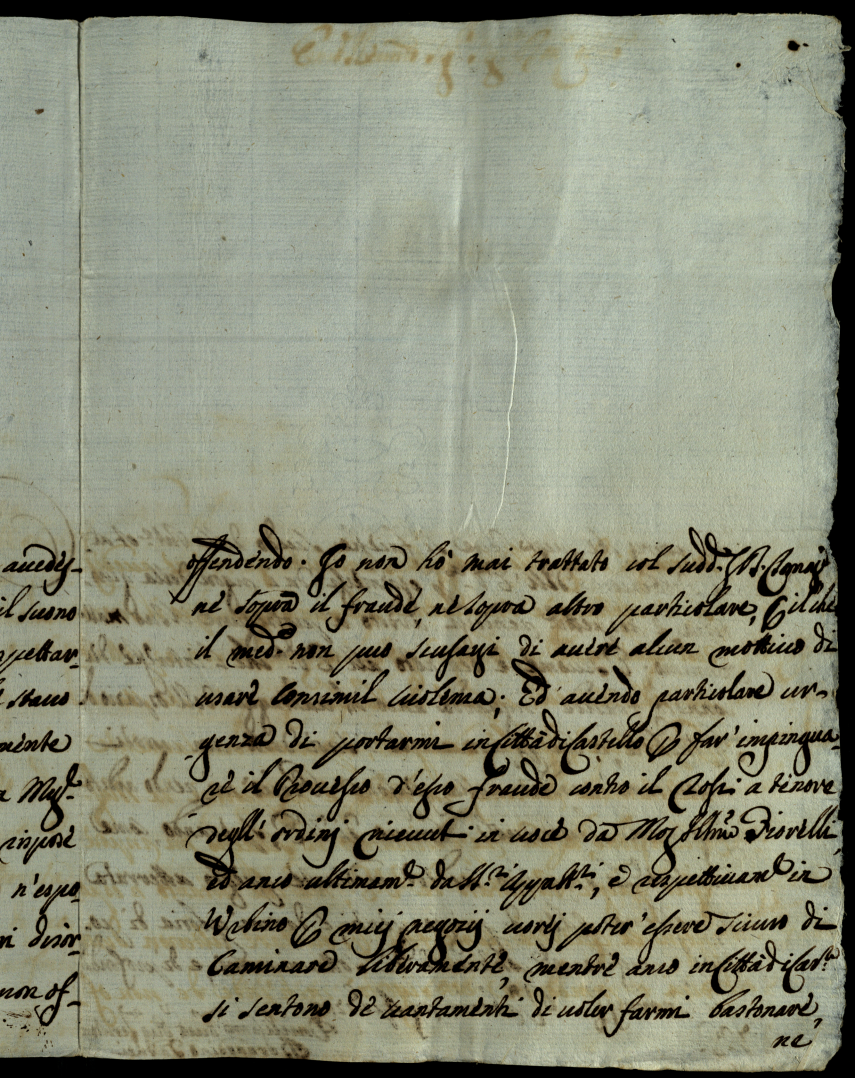 avedes-
il suono
spettar-
stavo
mente
a Mag.
rispose
n'espo-
ri disor-
non of-
offendendo. Io non hò mai trattato col sudd. G. B.
nè sopra il fraude, nè sopra altro particolare, il che
il med.º non puo scusarsi di avere alcun mottivo di
usare consimil violenza; Ed avendo particolare ur-
genza di portarmi in Città di Castello P far' impingua-
re il Processo d'esso fraude contro il Rossi a tenore
degli ordinj ricevuti in voce da Fiorelli,
ed anco ultimam.te da e respettivam.te in
Urbino P miej negozij vorej poter' essere sicuro di
Caminare liberamente, mentre anco in Città di Cas.to
si sentono de vantamenti di voler farmi bastonare,
ne